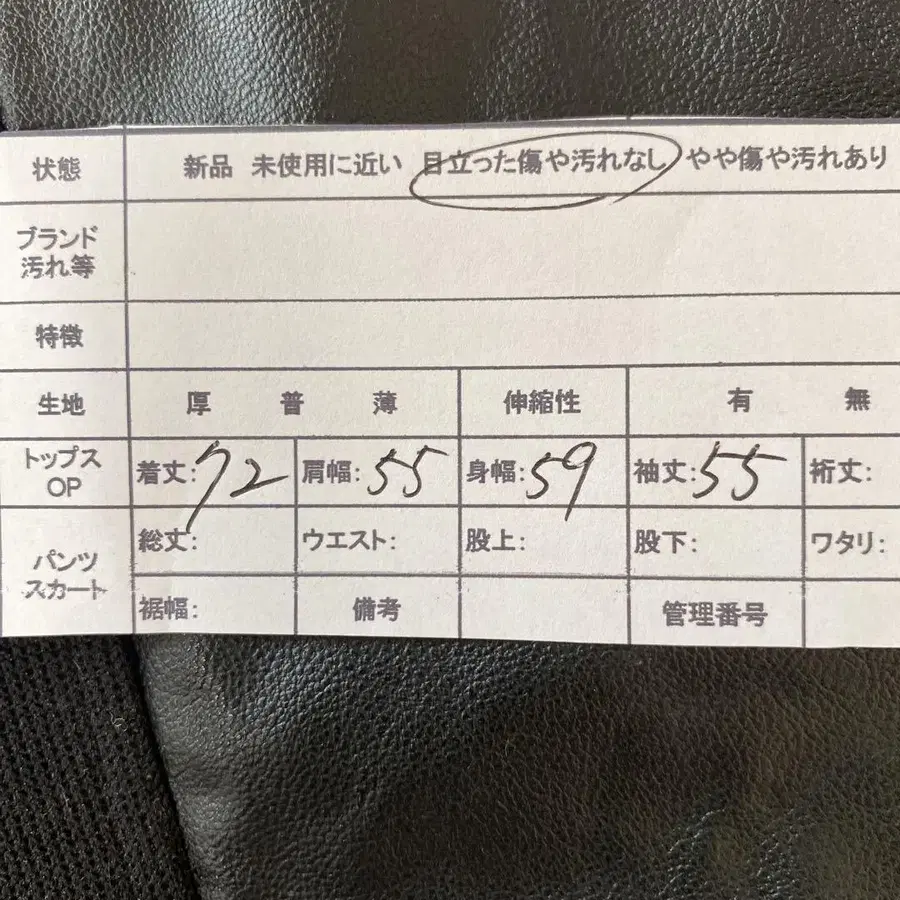 状態 新品 未使用に近い 目立った傷や汚れなし やや傷や汚れあり
ブランド
汚れ等
特徴
生地 厚 普 薄 伸縮性 有 無
トップス
OP
着丈:72 肩幅:55 身幅:59 袖丈:55 裄丈:
パンツ
スカート
総丈: ウエスト: 股上: 股下: ワタリ:
裾幅: 備考 管理番号